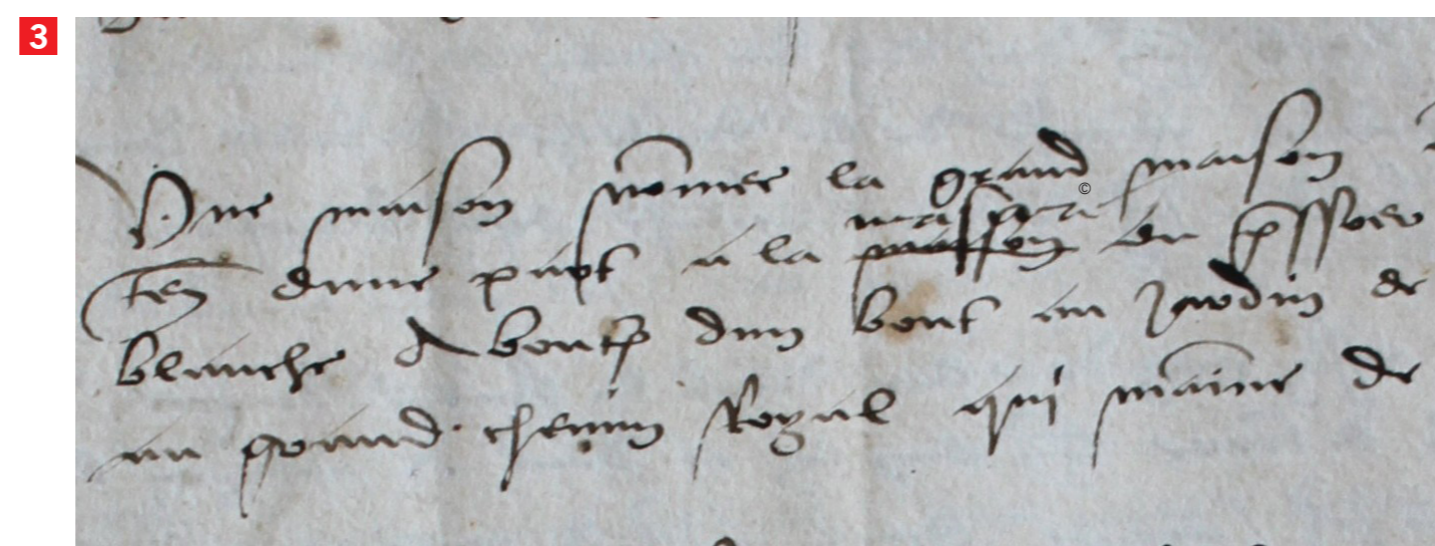 3
Une maison nōmee la grand maison
masure
ten̄ dune part a la maison du p̄ssoer
blanche Aboutz dun bout au Jardin de
au grand chemin Royal qui maīne de
©